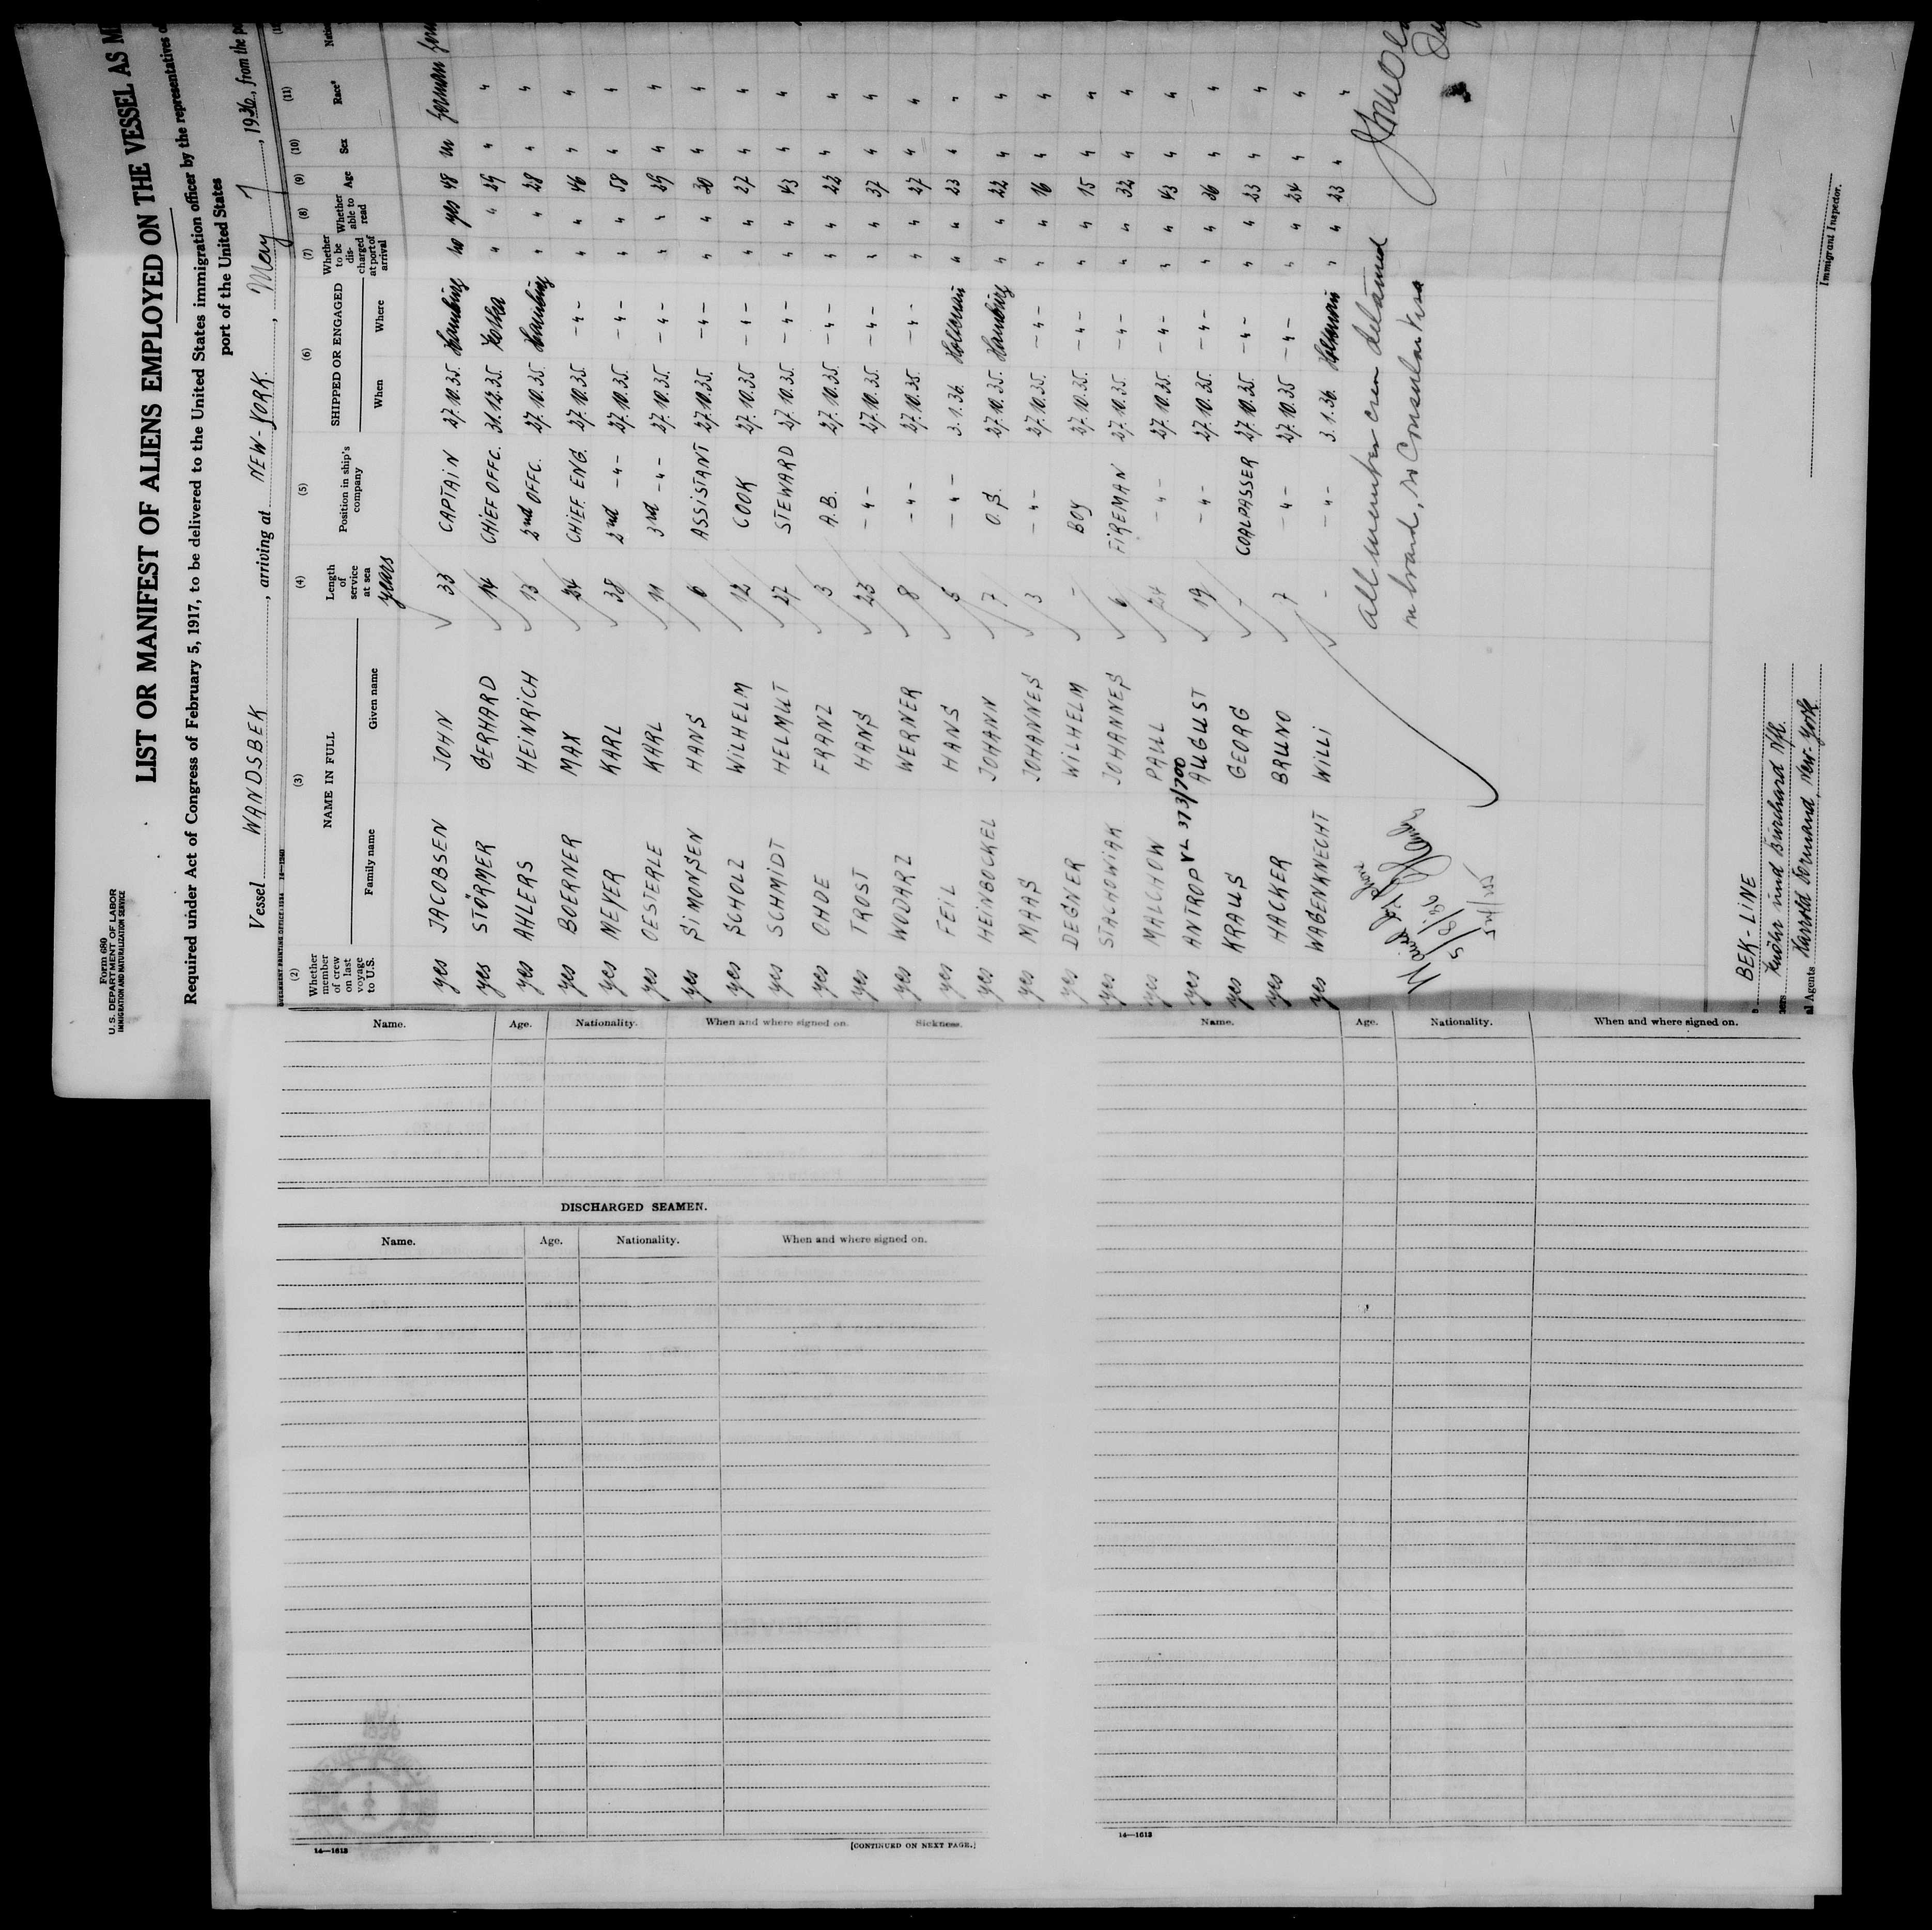 Form 680
U. S. DEPARTMENT OF LABOR
IMMIGRATION AND NATURALIZATION SERVICE
LIST OR MANIFEST OF ALIENS EMPLOYED ON THE VESSEL AS M
Required under Act of Congress of February 5, 1917, to be delivered to the United States immigration officer by the representatives
port of the United States
Vessel WANDSBEK, arriving at NEW-YORK, May 7, 1936, from the
(2) (3) (4) (5) (6) (7) (8) (9) (10) (11)
Whether member of crew on last voyage to U.S. NAME IN FULL Family name Given name Length of service at sea years Position in ship's company SHIPPED OR ENGAGED When Where Whether to be discharged at port of arrival Whether able to read Age Sex Race*
yes JACOBSEN JOHN 33 CAPTAIN 27.10.35. Hamburg no yes 48 m German
yes STÖRMER GERHARD 14 CHIEF OFFC. 31.12.35. Kotka " " 29 " "
yes AHLERS HEINRICH 13 2nd OFFC. 27.10.35. Hamburg " " 28 " "
yes BOERNER MAX 24 CHIEF. ENG. 27.10.35. -"- " " 46 " "
yes MEYER KARL 38 2nd -"- 27.10.35. -"- " " 58 " "
yes OESTERLE KARL 11 3rd -"- 27.10.35. -"- " " 29 " "
yes SIMONSEN HANS 6 ASSISTANT 27.10.35. -"- " " 30 " "
yes SCHOLZ WILHELM 12 COOK 27.10.35 -"- " " 27 " "
yes SCHMIDT HELMUT 27 STEWARD 27.10.35. -"- " " 43 " "
yes OHDE FRANZ 3 A.B. 27.10.35. -"- " " 22 " "
yes TROST HANS 23 -"- 27.10.35. -"- " " 37 " "
yes WODARZ WERNER 8 -"- 27.10.35. -"- " " 27 " "
yes FEIL HANS 5 -"- 3.1.36. Holtenau " " 23 " "
yes HEINBOCKEL JOHANN 7 O.S. 27.10.35. Hamburg " " 22 " "
yes MAAS JOHANNES 3 -"- 27.10.35. -"- " " 16 " "
yes DEGNER WILHELM - BOY 27.10.35. -"- " " 15 " "
yes STACHOWIAK JOHANNES 6 FIREMAN 27.10.35. -"- " " 32 " "
yes MALCHOW PAUL 24 -"- 27.10.35. -"- " " 43 " "
yes ANTROP VL 373/700 AUGUST 19 -"- 27.10.35. -"- " " 36 " "
yes KRAUS GEORG - COALPASSER 27.10.35 -"- " " 23 " "
yes HACKER BRUNO 7 -"- 27.10.35 -"- " " 24 " "
yes WAGENKNECHT WILLI - -"- 3.1.36. Holtenau " " 23 " "
All members crew detained
on board, no Consular Visa
5/8/36
BEK-LINE
Knöhr und Burchard Nfl.
al Agents
Immigrant Inspector.
Name. Age. Nationality. When and where signed on. Sickness.
DISCHARGED SEAMEN.
Name. Age. Nationality. When and where signed on.
14—1613
[CONTINUED ON NEXT PAGE.]
Name. Age. Nationality. When and where signed on.
14—1613